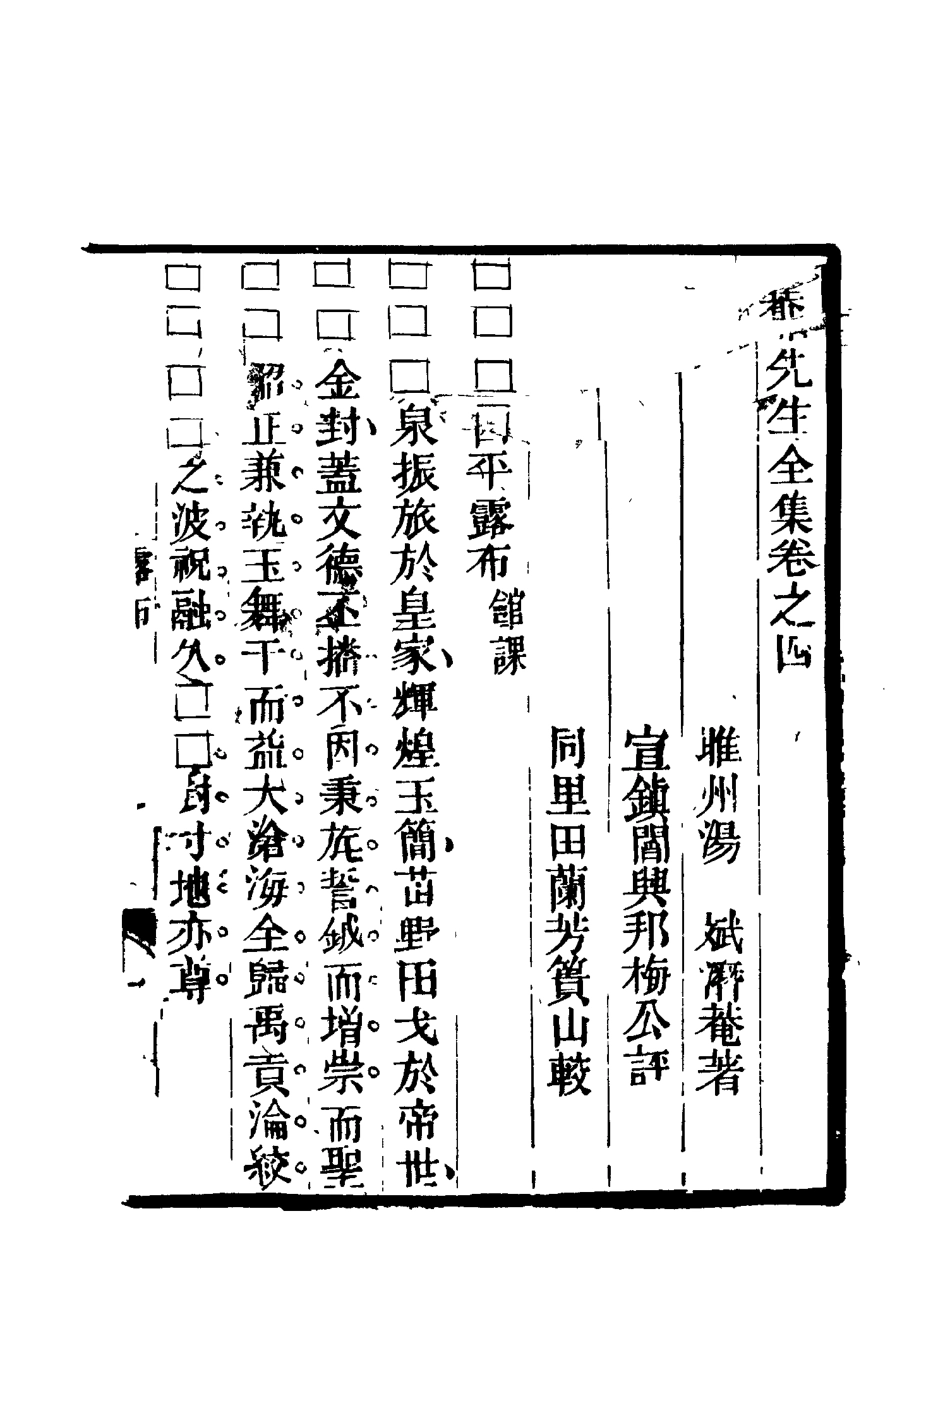 菴先生全集卷之四
睢州湯 斌潛菴著
宣鎮閻興邦梅公評
同里田蘭芳簣山較
□□□□平露布 館課
□□□泉振旅於皇家輝煌玉簡苗野田戈於帝世
□□金封蓋文德丕播不因秉旄誓鉞而增崇而聖
□□昭正兼執玉舞干而益大滄海全歸禹貢淪綏
□□□□之波祝融久□□封寸地亦尊
露布
一